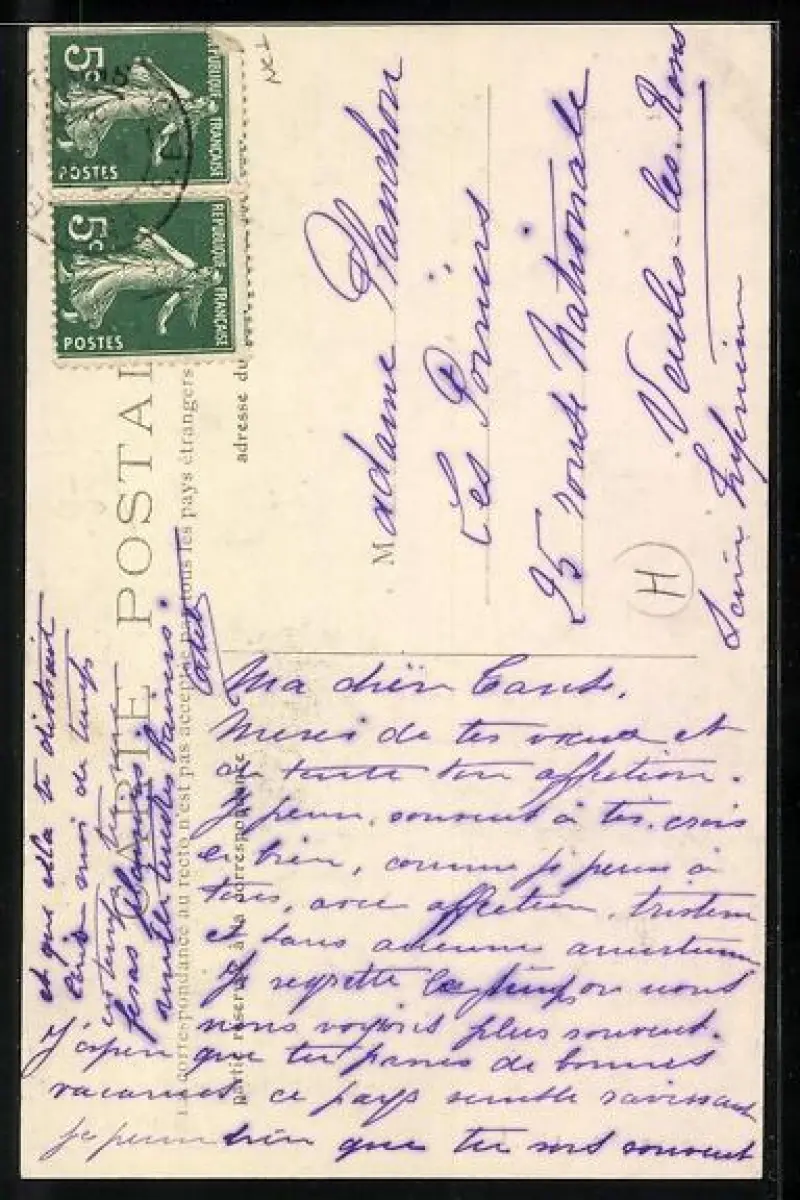 5c
RÉPUBLIQUE FRANÇAISE
POSTES
5c
RÉPUBLIQUE FRANÇAISE
POSTES
CARTE POSTALE
La correspondance au recto n'est pas acceptée par tous les pays étrangers
Partie réservée à la correspondance
adresse du
Madame Planchon
Les
25 route Nationale
Veules-les-Roses
Seine Inférieure
H
Ma chère Tante,
Merci de tes vœux et
de toute ton affection.
Je pense souvent à toi, crois
le bien, comme je pense à
tous, avec affection, tristesse
et sans aucune amertume
Je regrette le temps où nous
nous voyions plus souvent.
J'espère que tu passes de bonnes
vacances ce pays semble ravissant
je pense bien que tu sors souvent
et que cela te distrait
Écris moi de temps
en temps tu me
feras plaisir
mille tendres baisers.